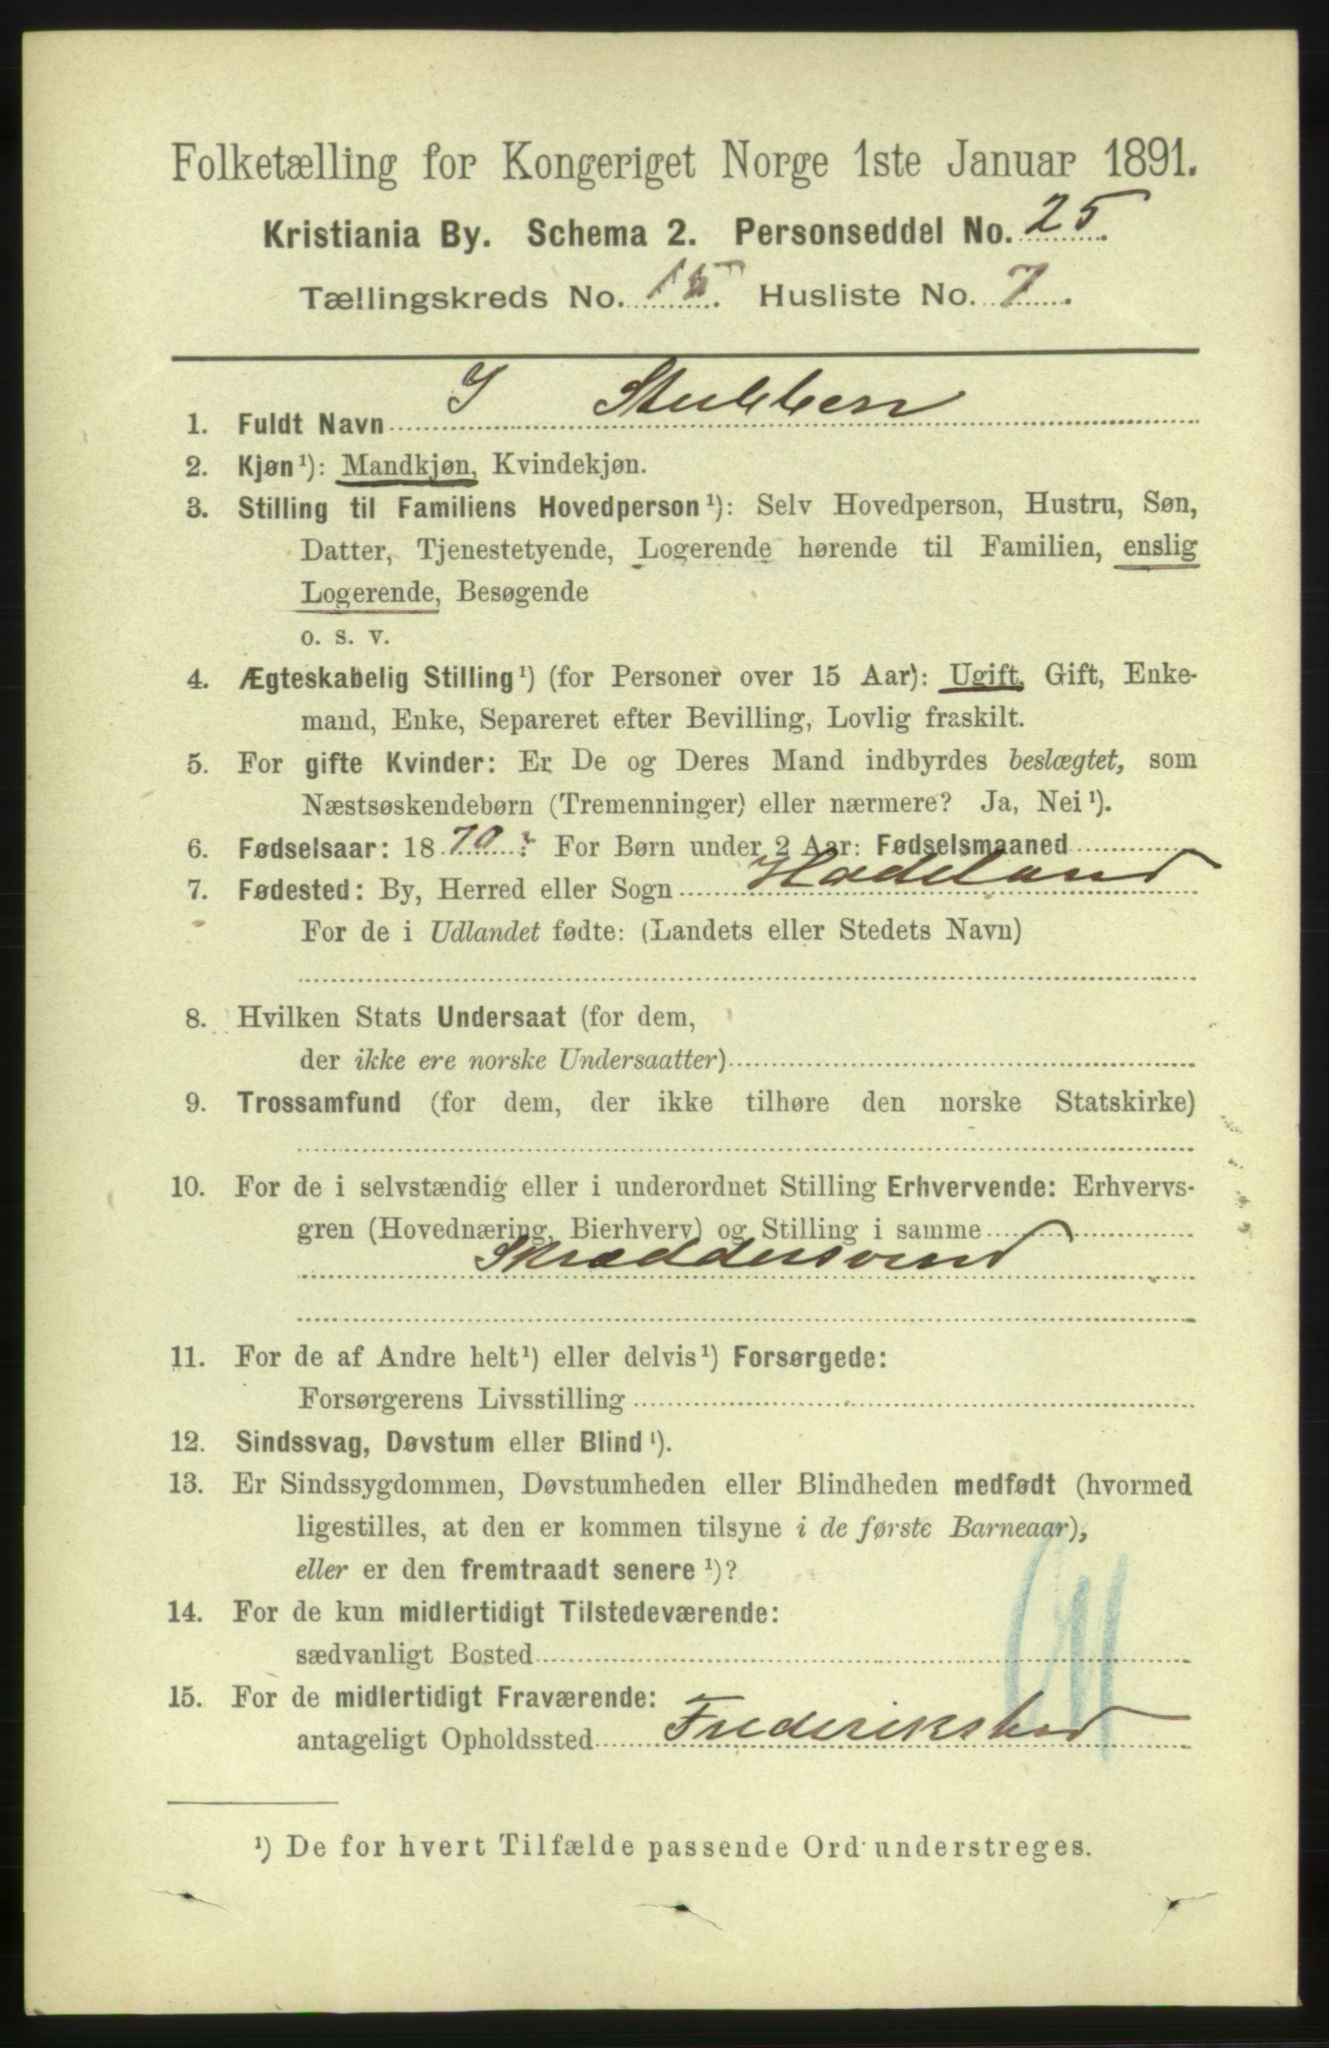 Folketælling for Kongeriget Norge 1ste Januar 1891.
Kristiania By. Schema 2. Personseddel No. 25.
Tællingskreds No. 15. Husliste No. 7.
1. Fuldt Navn I Stubben
2. Kjøn¹): Mandkjøn, Kvindekjøn.
3. Stilling til Familiens Hovedperson¹): Selv Hovedperson, Hustru, Søn,
Datter, Tjenestetyende, Logerende hørende til Familien, enslig
Logerende, Besøgende
o. s. v.
4. Ægteskabelig Stilling¹) (for Personer over 15 Aar): Ugift, Gift, Enke-
mand, Enke, Separeret efter Bevilling, Lovlig fraskilt.
5. For gifte Kvinder: Er De og Deres Mand indbyrdes beslægtet, som
Næstsøskendebørn (Tremenninger) eller nærmere? Ja, Nei¹).
6. Fødselsaar: 1870? For Børn under 2 Aar: Fødselsmaaned
7. Fødested: By, Herred eller Sogn Hadeland
For de i Udlandet fødte: (Landets eller Stedets Navn)
8. Hvilken Stats Undersaat (for dem,
der ikke ere norske Undersaatter)
9. Trossamfund (for dem, der ikke tilhøre den norske Statskirke)
10. For de i selvstændig eller i underordnet Stilling Erhvervende: Erhvervs-
gren (Hovednæring, Bierhverv) og Stilling i samme
Skræddersvend
11. For de af Andre helt¹) eller delvis¹) Forsørgede:
Forsørgerens Livsstilling
12. Sindssvag, Døvstum eller Blind¹).
13. Er Sindssygdommen, Døvstumheden eller Blindheden medfødt (hvormed
ligestilles, at den er kommen tilsyne i de første Barneaar),
eller er den fremtraadt senere¹)?
14. For de kun midlertidigt Tilstedeværende:
sædvanligt Bosted
15. For de midlertidigt Fraværende:
antageligt Opholdssted Frederikshad
¹) De for hvert Tilfælde passende Ord understreges.